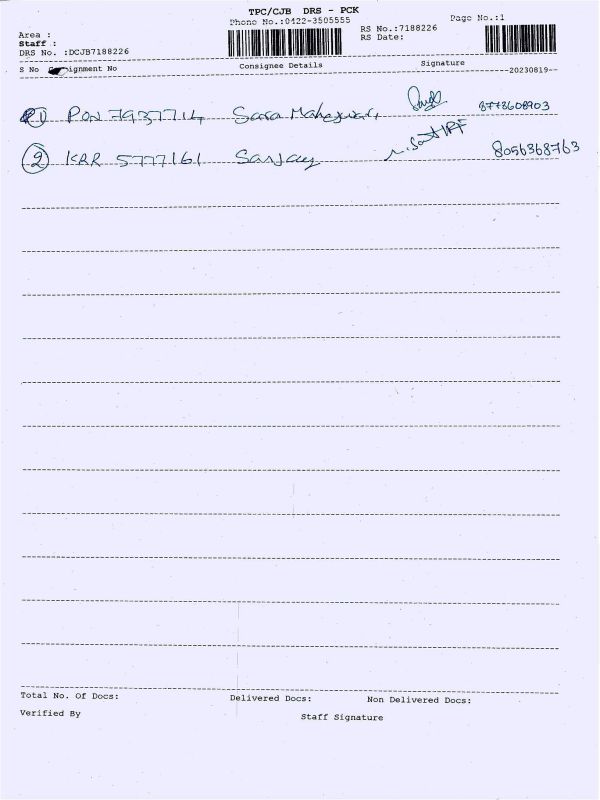 TPC/CJB DRS - PCK
Phone No.:0422-3505555
Page No.:1
Area :
RS No.:7188226
Staff :
RS Date:
DRS No. :DCJB7188226
S No ignment No Consignee Details Signature
--20230819--
1) PON 7937714 Sara Maheswari 8778608903
2 KRR 5777161 Sanjay 8056368763
Total No. Of Docs: Delivered Docs: Non Delivered Docs:
Verified By Staff Signature